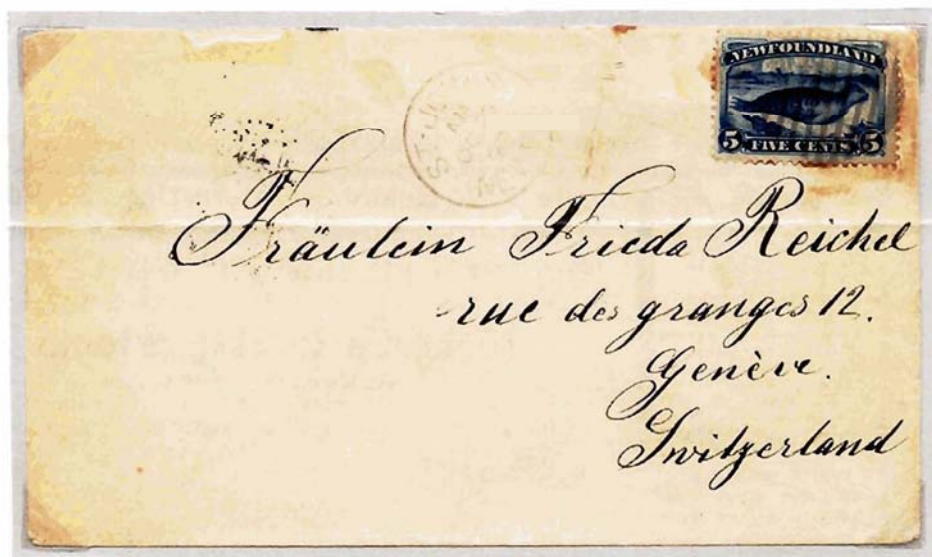 NEWFOUNDLAND
5 FIVE CENTS 5
Fräulein Frieda Reichel
rue des granges 12.
Genève.
Switzerland